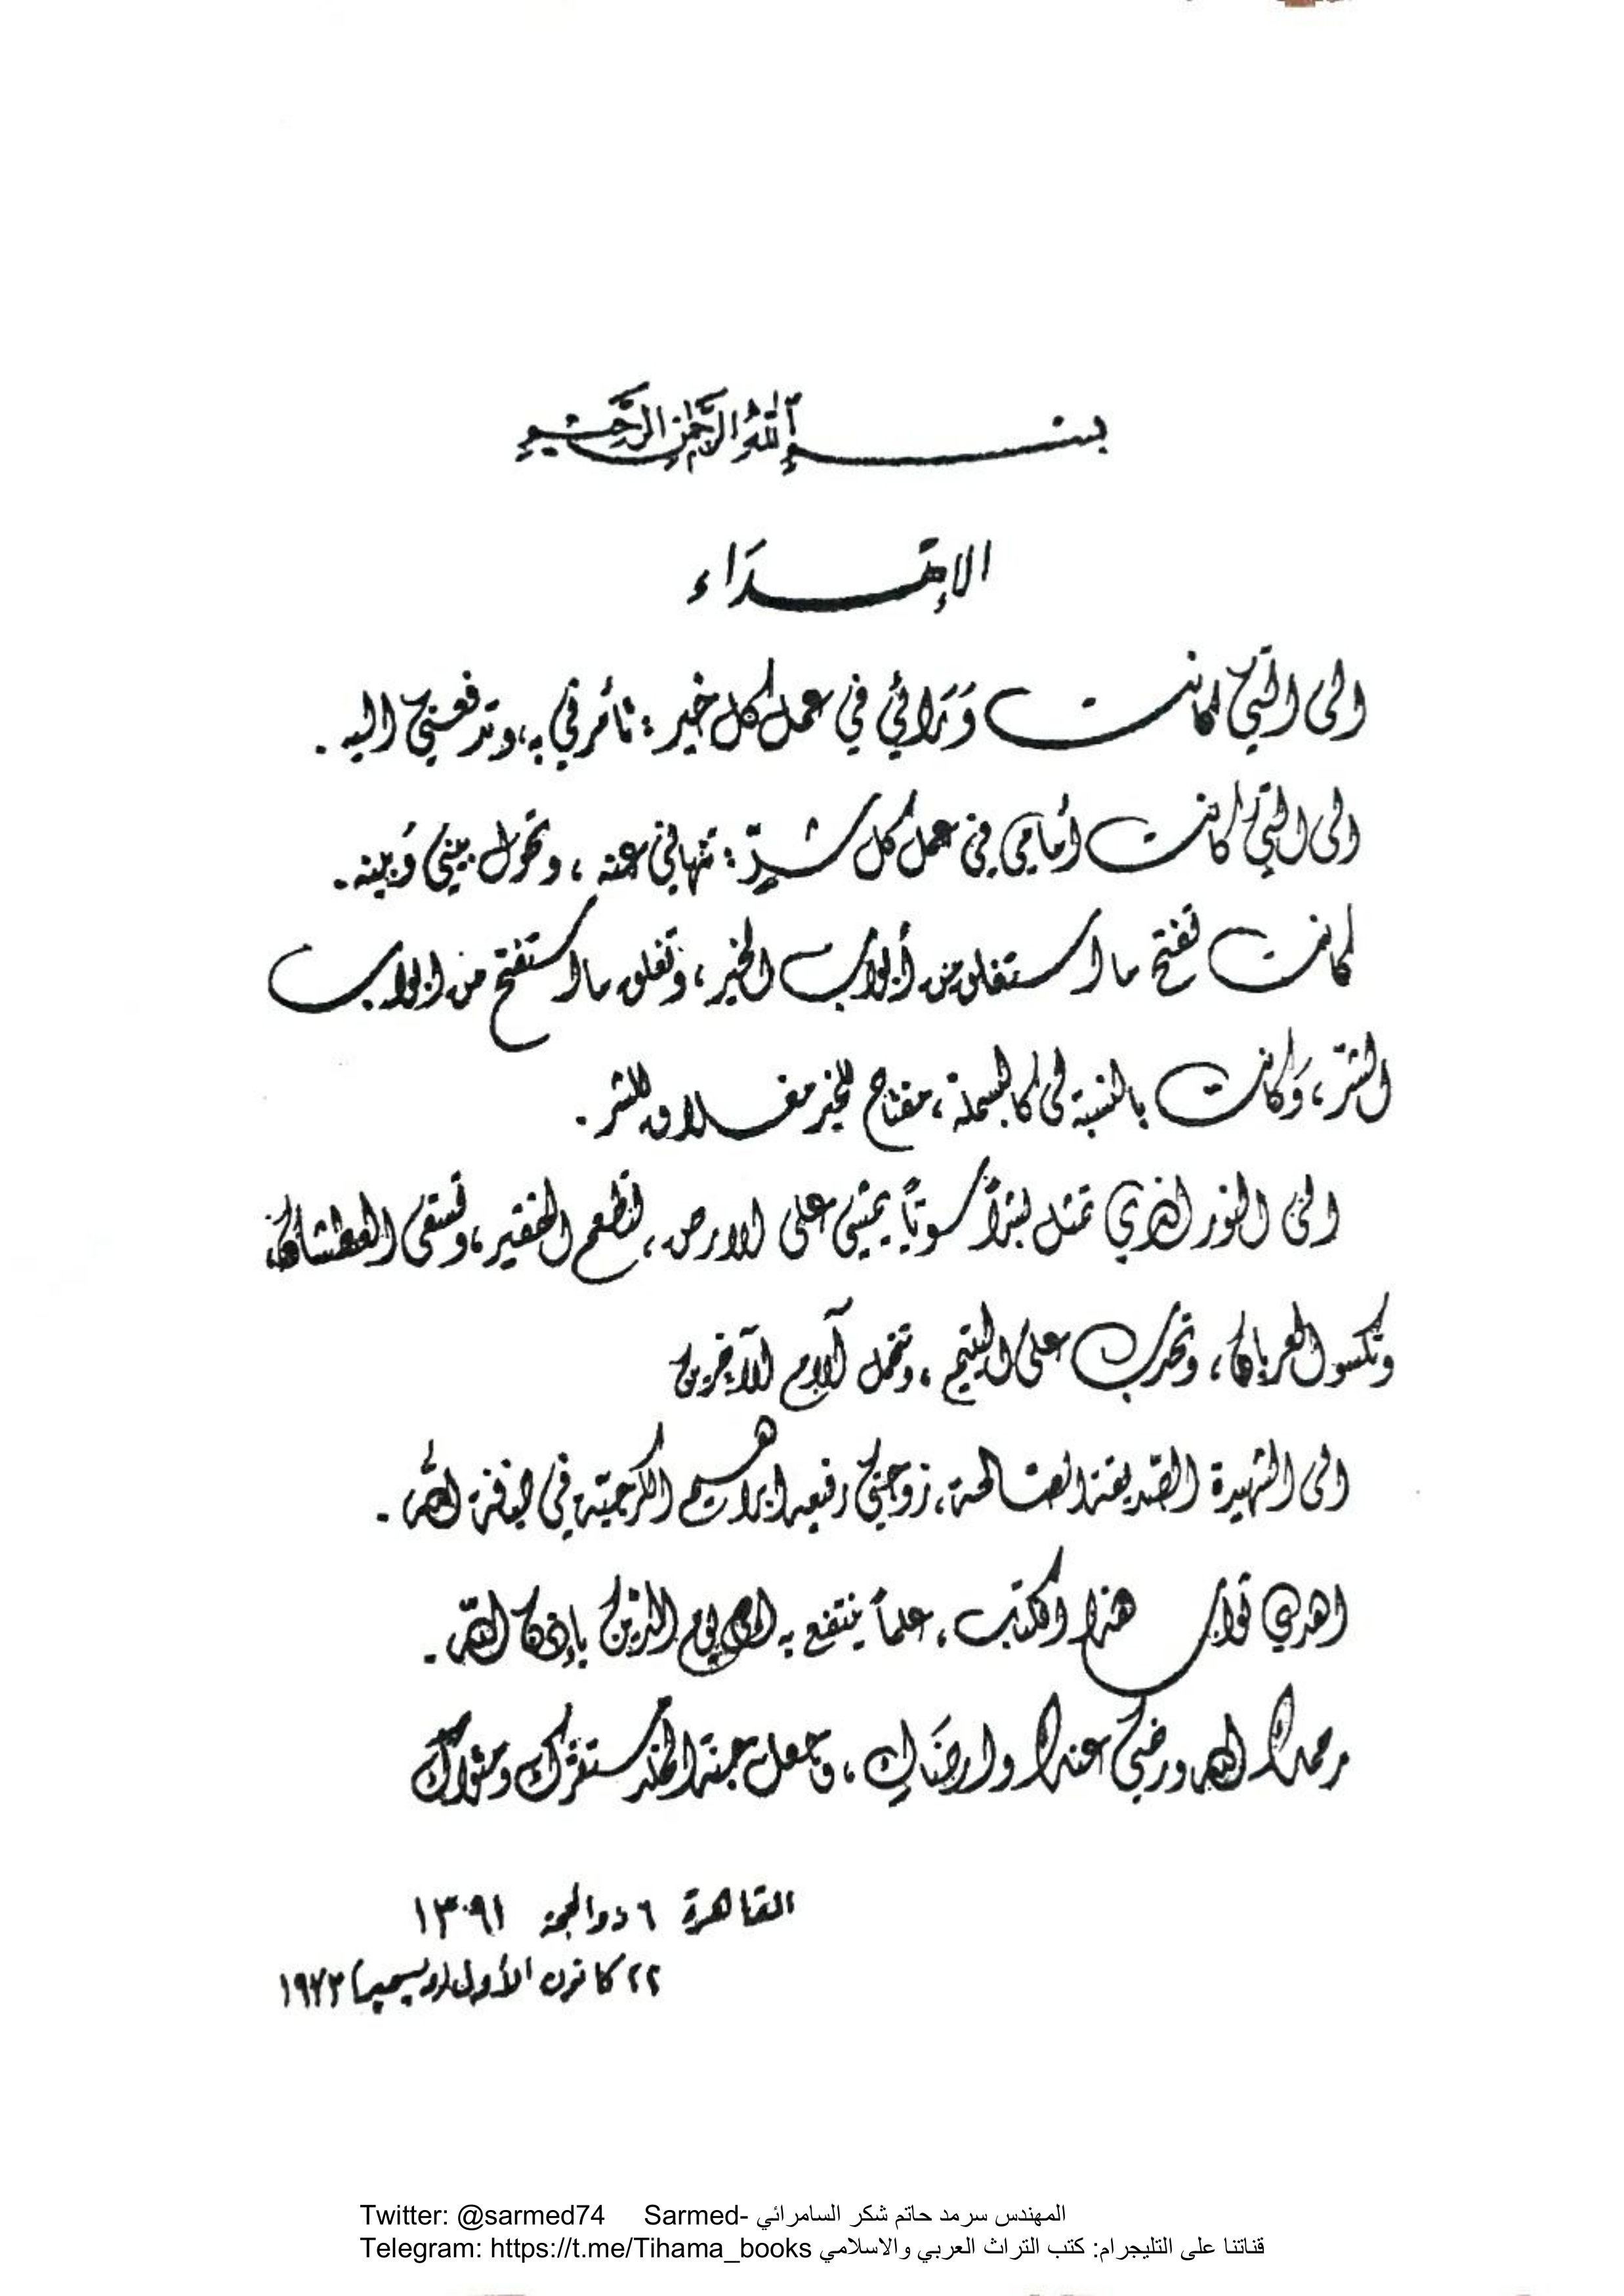 بسم الله الرحمن الرحيم
الإهداء
الى التي كانت وَرَائي في عمل كل خير : تأمرني به، وتدفعني اليه .
الى التي كانت أمامي في عمل كل شرٍّ : تنهاني عنه ، وتحول بيني وَبينه .
كانت تفتح ما استغلق من أبواب الخير ، وتغلق ما استفتح من ابواب
الشرّ ، وَكانت بالنسبة لي كالبسملة ، مفتاح للخير مغلاق للشر .
الى النور الذي تمثل بشراً سويّاً يمشي على الارض ، تطعم الفقير ، وتسقي العطشان،
وتكسو العريان ، وتحدب على اليتيم ، وتحمل آلام الآخرين
الى الشهيدة الصّديقة الصالحة ، زوجتي رفيعه ابراهيم الكرجيّة في ضيافة الله .
اهدي ثواب هذا الكتاب ، علماً ينتفع به الى يوم الدّين بإذن اللّه .
رحمك الله ورضي عنك وارضَاكِ ، وجعل جنة الخلد مستقرك ومثواك
القاهرة ٦ ذو الحجة ١٣٩١
٢٢ كانون الأول ديسمبر ١٩٧٣
Twitter: @sarmed74 Sarmed- المهندس سرمد حاتم شكر السامرائي
Telegram: https://t.me/Tihama_books قناتنا على التليجرام: كتب التراث العربي والاسلامي